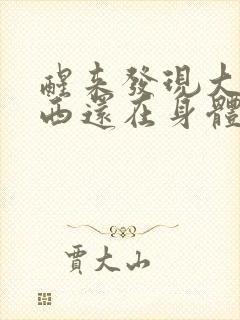 醒来發現大
西還在身體
賈大山